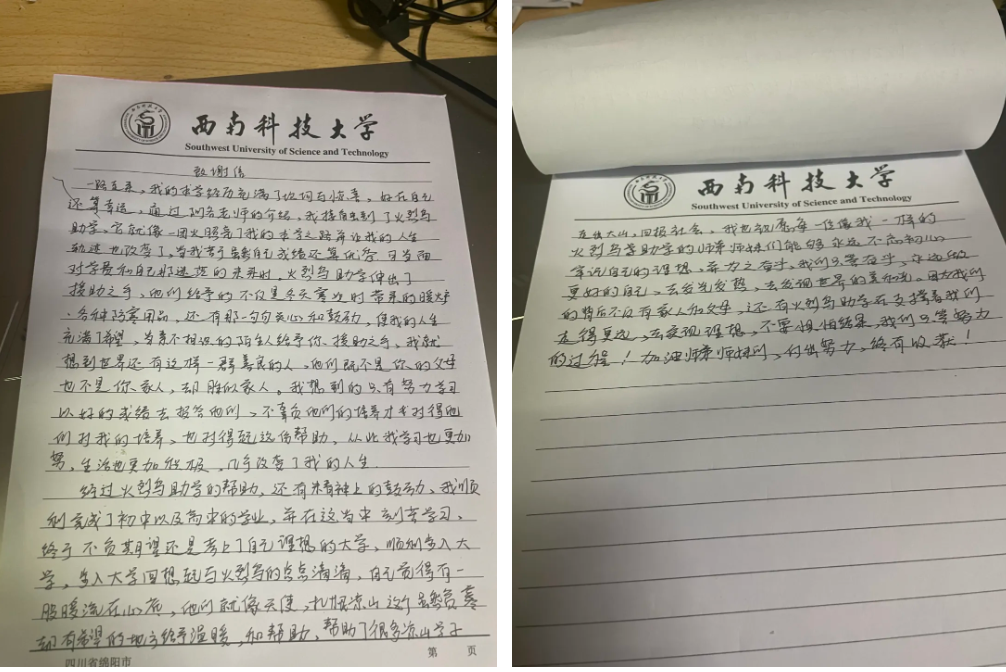 西南科技大学
Southwest University of Science and Technology
致谢信
一路走来,我的求学经历充满了坎坷与惊喜,好在自己
还算幸运,通过别名老师的介绍,我接触到了火烈鸟
助学,它就像一团火照亮了我的求学之路并让我的人生
轨迹也改变了,当我苦于虽然自己成绩还算优秀,可当面
对学费和自己那迷茫的未来时,火烈鸟助学伸出了
援助之手,他们给予的不仅是冬天寒冷时带来的暖炉
、各种防寒用品,还有那一句句关心和鼓励,使我的人生
充满了希望,当素不相识的陌生人给予你援助之手,我就
想到世界还有这样一群善良的人,他们既不是你的父母
也不是你家人,却胜似家人。我想到的只有努力学习
以好的成绩去报答他们、不辜负他们的培养才对得起他
们对我的培养、也对得起这份帮助,从此我学习也更加
努,生活也更加积极,几乎改变了我的人生.
经过火烈鸟助学的帮助,还有精神上的鼓励,我顺
利完成了初中以及高中的学业,并在这当中刻苦学习、
终于不负期望还是考上了自己理想的大学,顺利步入大
学,步入大学回想起与火烈鸟的点点滴滴,自己觉得有一
股暖流在心底,他们就像天使,扎根凉山这个虽然贫寒
却有希望的地方给予温暖,和帮助,帮助了很多凉山学子
四川省绵阳市 第 页
西南科技大学
Southwest University of Science and Technology
走出大山,回报社会,我也祝愿每一位像我一样的
火烈鸟学助学的师弟师妹们能够永远不忘初心
牢记自己的理想,奋力之奋斗,我们只要奋斗,
更好的自己,去发光发热,去发现世界的美和光,因为我们
的背后不仅有家人和父母,还有火烈鸟助学在支撑着我们
走得更远,去实现理想,不要惧怕结果,我们只管努力
的过程!加油师弟师妹们,付出努力,终有收获!